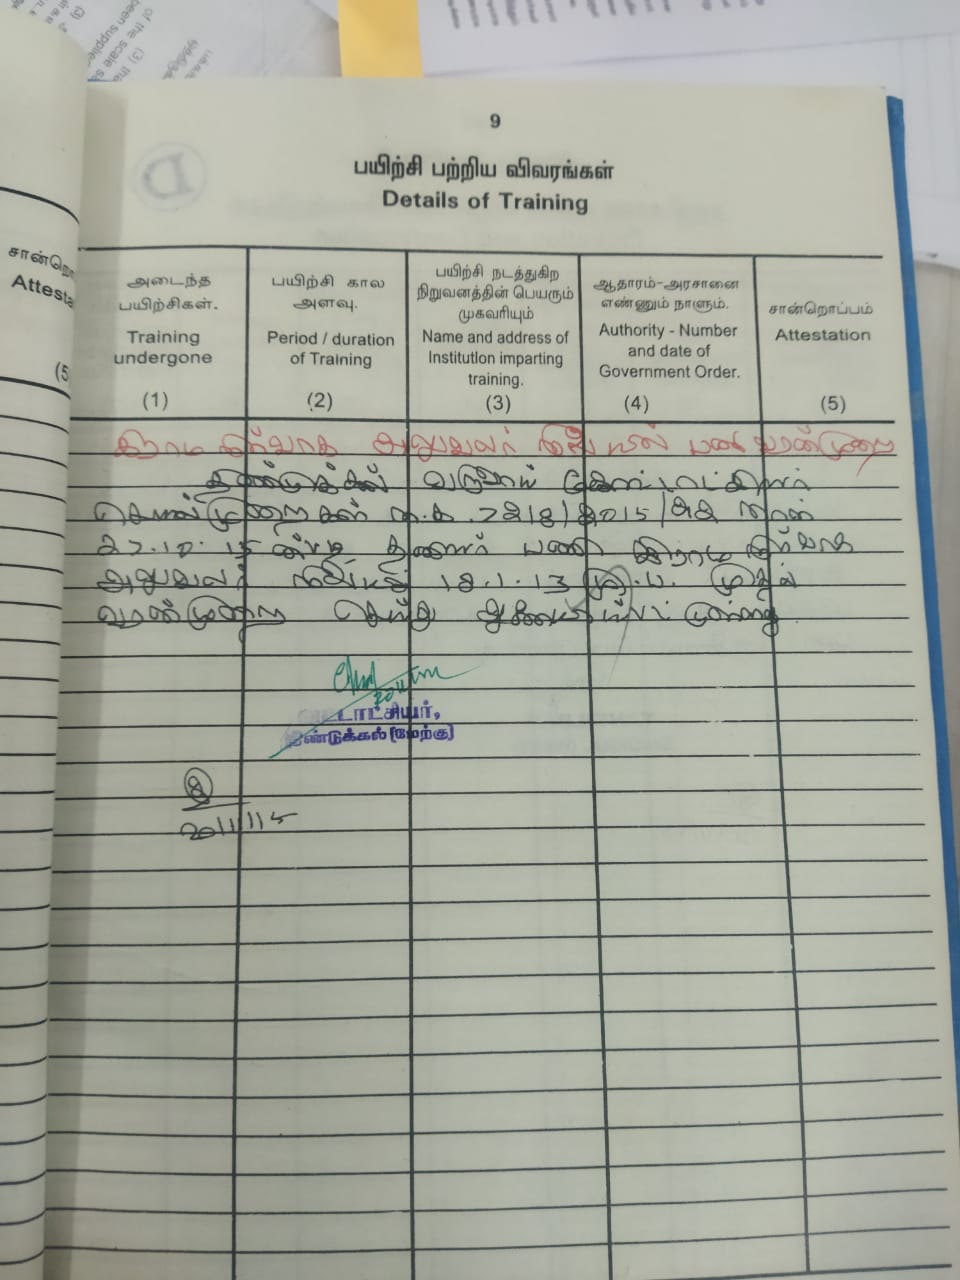 9
பயிற்சி பற்றிய விவரங்கள்
Details of Training
அடைந்த
பயிற்சிகள்.
Training
undergone
(1)
பயிற்சி கால
அளவு.
Period / duration
of Training
(2)
பயிற்சி நடத்துகிற
நிறுவனத்தின் பெயரும்
முகவரியும்
Name and address of
Institution imparting
training.
(3)
ஆதாரம்-அரசாணை
எண்ணும் நாளும்.
Authority - Number
and date of
Government Order.
(4)
சான்றொப்பம்
Attestation
(5)
கிராம நிர்வாக அலுவலர் நிலையில் பணி வரன்முறை
திண்டுக்கல் வருவாய் கோட்டாட்சியர்
செயல்முறைகள் ந.க. 7218/2015/அ2 நாள்
27.10.15 ன்படி இன்னார் பணி கிராம நிர்வாக
அலுவலர் நிலையில் 18.1.13 மு.ப. முதல்
வரன்முறை செய்து ஆணையிடப்பட்டுள்ளது
டாட்சியர்,
திண்டுக்கல் (மேற்கு)
20/11/15